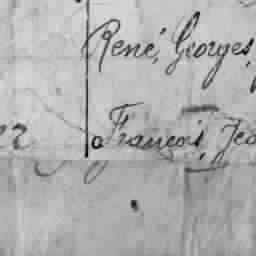 René, Georges,
François, Jea